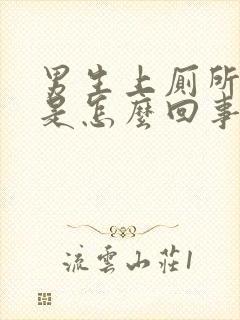 男生上厕所
是怎麼回事
流雲山莊1